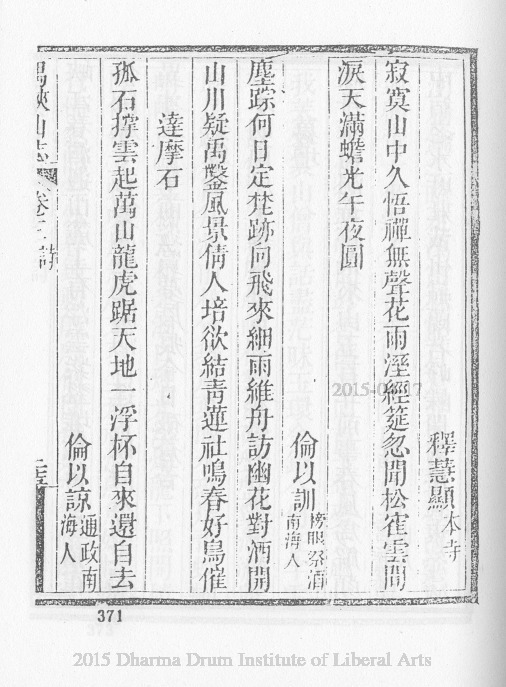 釋慧顯本寺
寂寞山中久悟禪無聲花雨溼經筵忽聞松雀雲間
淚天滿蟾光午夜圓
倫以訓榜眼祭酒南海人
塵踪何日定梵跡向飛來細雨維舟訪幽花對酒開
山川疑禹鑿風景倩人培欲結青蓮社鳴春好鳥催
達摩石
孤石撐雲起萬山龍虎踞天地一浮杯自來還自去
倫以諒通政南海人
禺峽山志 卷三 詩
2015-0 17
371
2015 Dharma Drum Institute of Liberal Arts